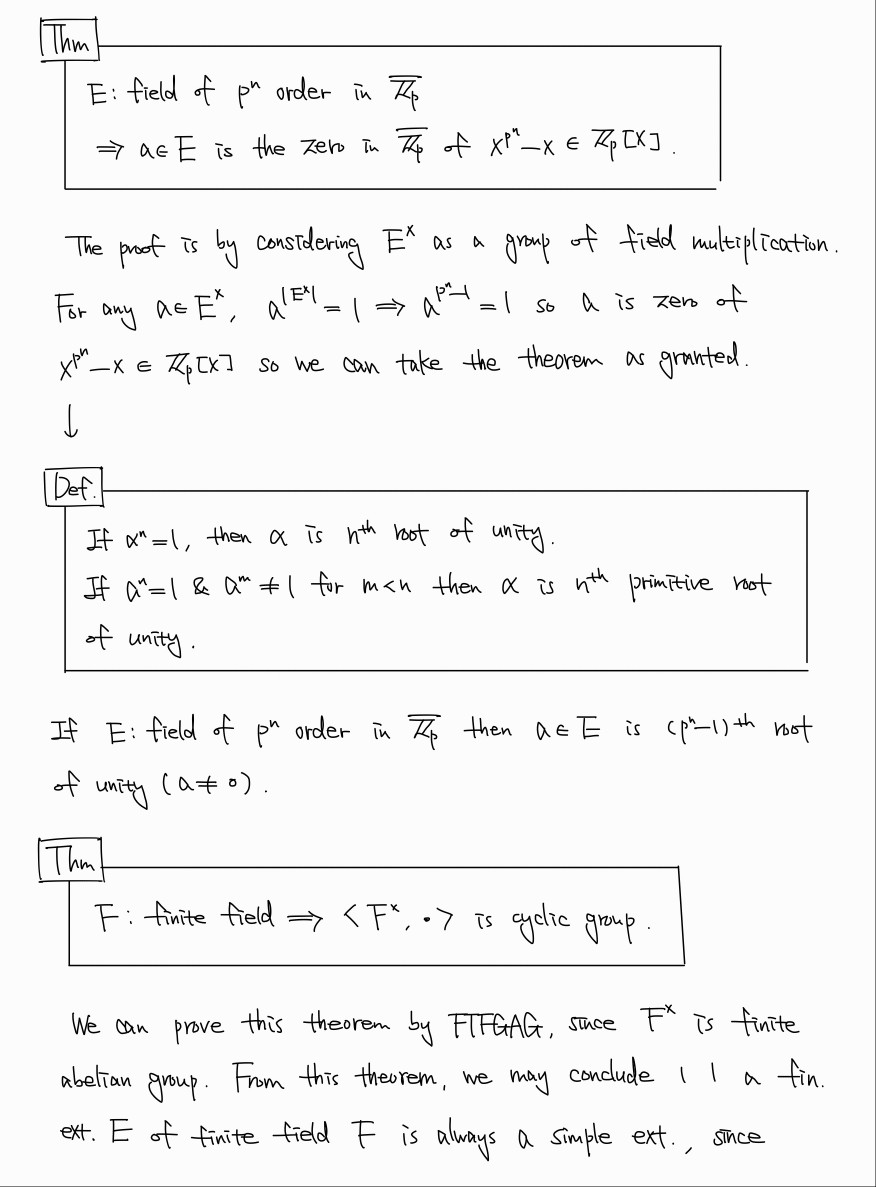 Thm
E: field of pⁿ order in \overline{ℤₚ}
⇒ a∈E is the zero in \overline{ℤₚ} of x^{pⁿ}-x ∈ ℤₚ[x].
The proof is by considering Eˣ as a group of field multiplication.
For any a∈Eˣ, a^{|Eˣ|} = 1 ⇒ a^{pⁿ-1} = 1 so a is zero of
x^{pⁿ}-x ∈ ℤₚ[x] so we can take the theorem as granted.
↓
Def.
If αⁿ=1, then α is nᵗʰ root of unity.
If aⁿ=1 & aᵐ≠1 for m<n then α is nᵗʰ primitive root
of unity.
If E: field of pⁿ order in \overline{ℤₚ} then a∈E is (pⁿ-1)th root
of unity (a≠0).
Thm
F: finite field ⇒ <Fˣ, ·> is cyclic group.
We can prove this theorem by FTFGAG, since Fˣ is finite
abelian group. From this theorem, we may conclude a fin.
ext. E of finite field F is always a simple ext., since